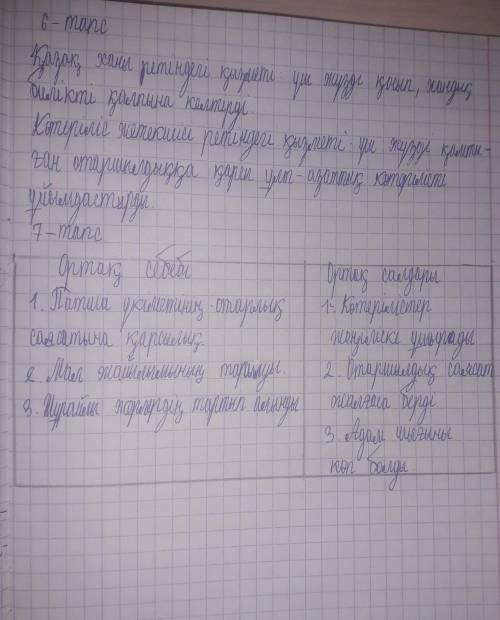 6-тапс
Қазақ ханы ретіндегі қызметі: үш жүзді қосып, хандық
билікті қалпына келтірді.
Көтеріліс жетекшісі ретіндегі қызметі: үш жүзді қамты-
ған отаршылдыққа қарсы ұлт-азаттық көтерілісті
ұйымдастырды.
7-тапс
Ортақ себебі
1. Патша үкіметінің отарлық
саясатына қарсылық.
2. Мал жайылымының тарылуы.
3. Шұрайлы жерлердің тартып алынды
Ортақ салдары
1- Көтерілістер
жеңіліске ұшырады
2. Отаршылдық саясат
жалғаса берді.
3. Адам шығыны
көп болды